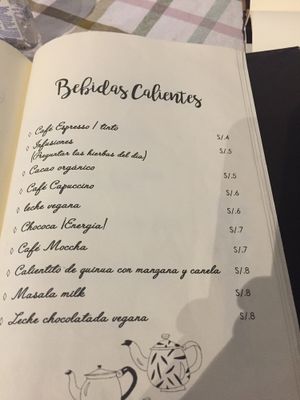 Bebidas Calientes
◊ Café Espresso / tinto S/.4
◊ Infusiones S/.5
(Preguntar las hierbas del día)
◊ Cacao orgánico S/.5
◊ Café Capuccino S/.6
◊ leche vegana S/.6
◊ Chococa |Energía| S/.7
◊ Café Moccha S/.7
◊ Calientito de quinua con mangana y canela S/.8
◊ Masala milk S/.8
◊ Leche chocolatada vegana S/.8